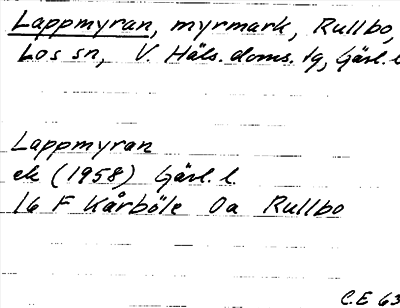 Lappmyran, myrmark, Rullbo,
Los sn, V. Häls. doms. lg, Gävl. l
Lappmyran
ek (1958) Gävl. l.
16 F Kårböle 0a Rullbo
C.E 63